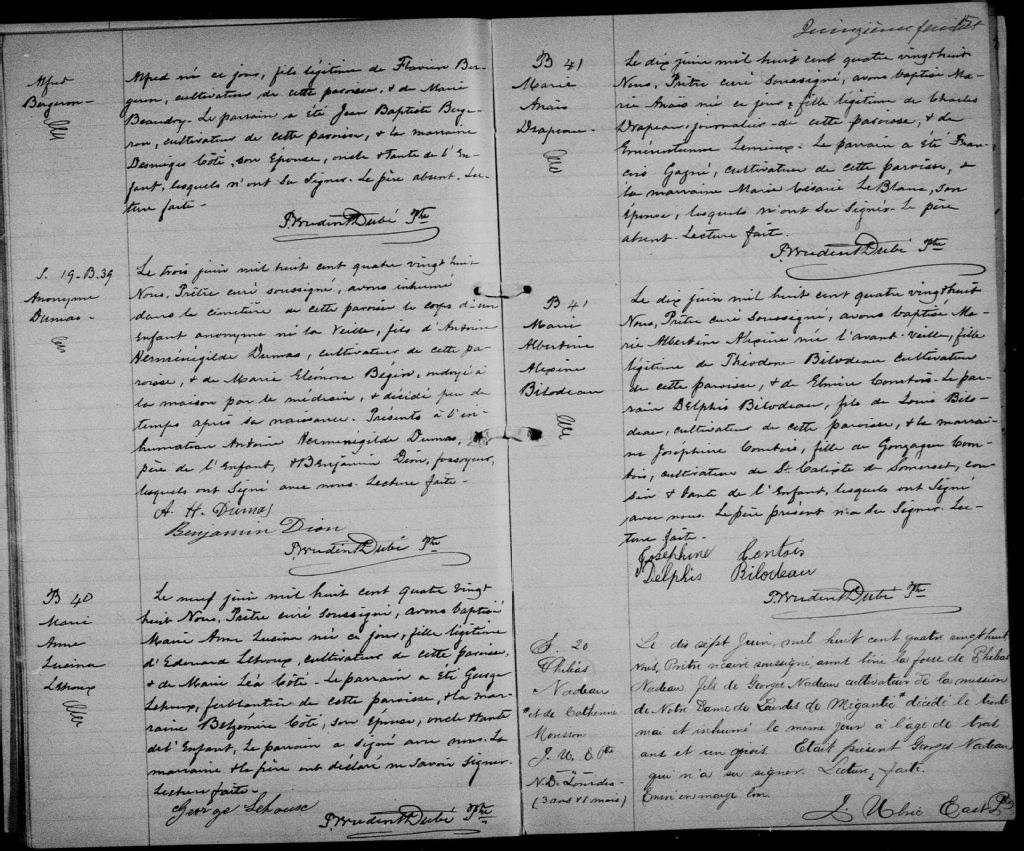 Alfred
Bergeron-
Alfred né ce jour, fils légitime de Flavien Ber-
geron, cultivateur de cette paroisse, & de Marie
Beaudry. Le parrain a été Jean Baptiste Berge-
ron, cultivateur de cette paroisse, & la marraine
Desneiges Côté, son Epouse, oncle & tante de l'En-
fant, lesquels n'ont su signer. Le père absent. Lec-
ture faite-
Prudent Dubé Ptre
S. 19-B.39
Anonyme
Dumas-
Le trois juin mil huit cent quatre vingt huit
Nous, Prêtre curé soussigné, avons inhumé
dans le cimetière de cette paroisse le corps d'un
Enfant anonyme né la Veille, fils d'Antoine
Herménégilde Dumas, cultivateur de cette pa-
roisse, & de Marie Eléonore Bégin, ondoyé à
la maison par le médecin, & décédé peu de
temps après sa naissance. Présents à l'in-
humation Antoine Herménégilde Dumas,
père de l'Enfant, & Benjamin Dion, fossoyeur,
lesquels ont signé avec nous. Lecture faite-
A. H. Dumas
Benjamin Dion
Prudent Dubé Ptre
B 40
Marie
Anne
Lusina
Lehoux
Le neuf juin mil huit cent quatre vingt
huit Nous, Prêtre curé soussigné, avons baptisé
Marie Anne Lusina née ce jour, fille légitime
d'Edouard Lehoux, cultivateur de cette paroisse,
& de Marie Léa Côté- Le parrain a été George
Lehoux, ferblantier de cette paroisse, & la mar-
raine Belzémire Côté, son Epouse, oncle & tante
de l'Enfant. Le parrain a signé avec nous. La
marraine & le père ont déclaré ne savoir signer.
Lecture faite-
George Lehouse
Prudent Dubé Ptre
Quinzième feuillet
B 41
Marie
Anaïs
Drapeau-
Le dix juin mil huit cent quatre vingt huit
Nous, Prêtre curé soussigné, avons baptisé Ma-
rie Anaïs né ce jour, fille légitime de Charles
Drapeau, journalier de cette paroisse, & de
Lemieux- Le parrain a été Fran-
çois Gagné, cultivateur de cette paroisse, &
la marraine Marie Césarie LeBlanc, son
Epouse, lesquels n'ont su signer- Le père
absent. Lecture faite.
Prudent Dubé Ptre
B 41
Marie
Albertine
Alexine
Bilodeau
Le dix juin mil huit cent quatre vingt huit
Nous, Prêtre curé soussigné, avons baptisé Ma-
rie Albertine Alexine née l'avant-veille, fille
légitime de Théodore Bilodeau cultivateur
de cette paroisse, & de Elmire Comtois- Le par-
rain Delphis Bilodeau, fils de Louis Bilo-
deau, cultivateur de cette paroisse, & la marrai-
ne Josephine Comtois, fille de Gonzague Com-
tois, cultivateur de St. Calixte de Somerset, cou-
sin & tante de l'Enfant, lesquels ont signé
avec nous. Le père présent n'a su signer. Lec-
ture faite-
Josephine Contois
Delphis Bilodeau
Prudent Dubé Ptre
S. 20
Phibias
Nadeau
*et de Catherine
Monson
J. U. E. Ptre
N.D. Lourdes
(3 ans & 1 mois)
Le dix sept Juin, mil huit cent quatre vingt huit
Nous, Prêtre vicaire soussigné, avons béni la fosse de Phibias
Nadeau, fils de Georges Nadeau cultivateur de la mission
de Notre Dame de Lourdes de Mégantic* décédé le trente
mai et inhumé le même jour à l'age de trois
ans et un mois Etait présent Georges Nadeau
qui n'a su signer. Lecture faite.
Envoi en marge bon.
J. Ulric East Ptre